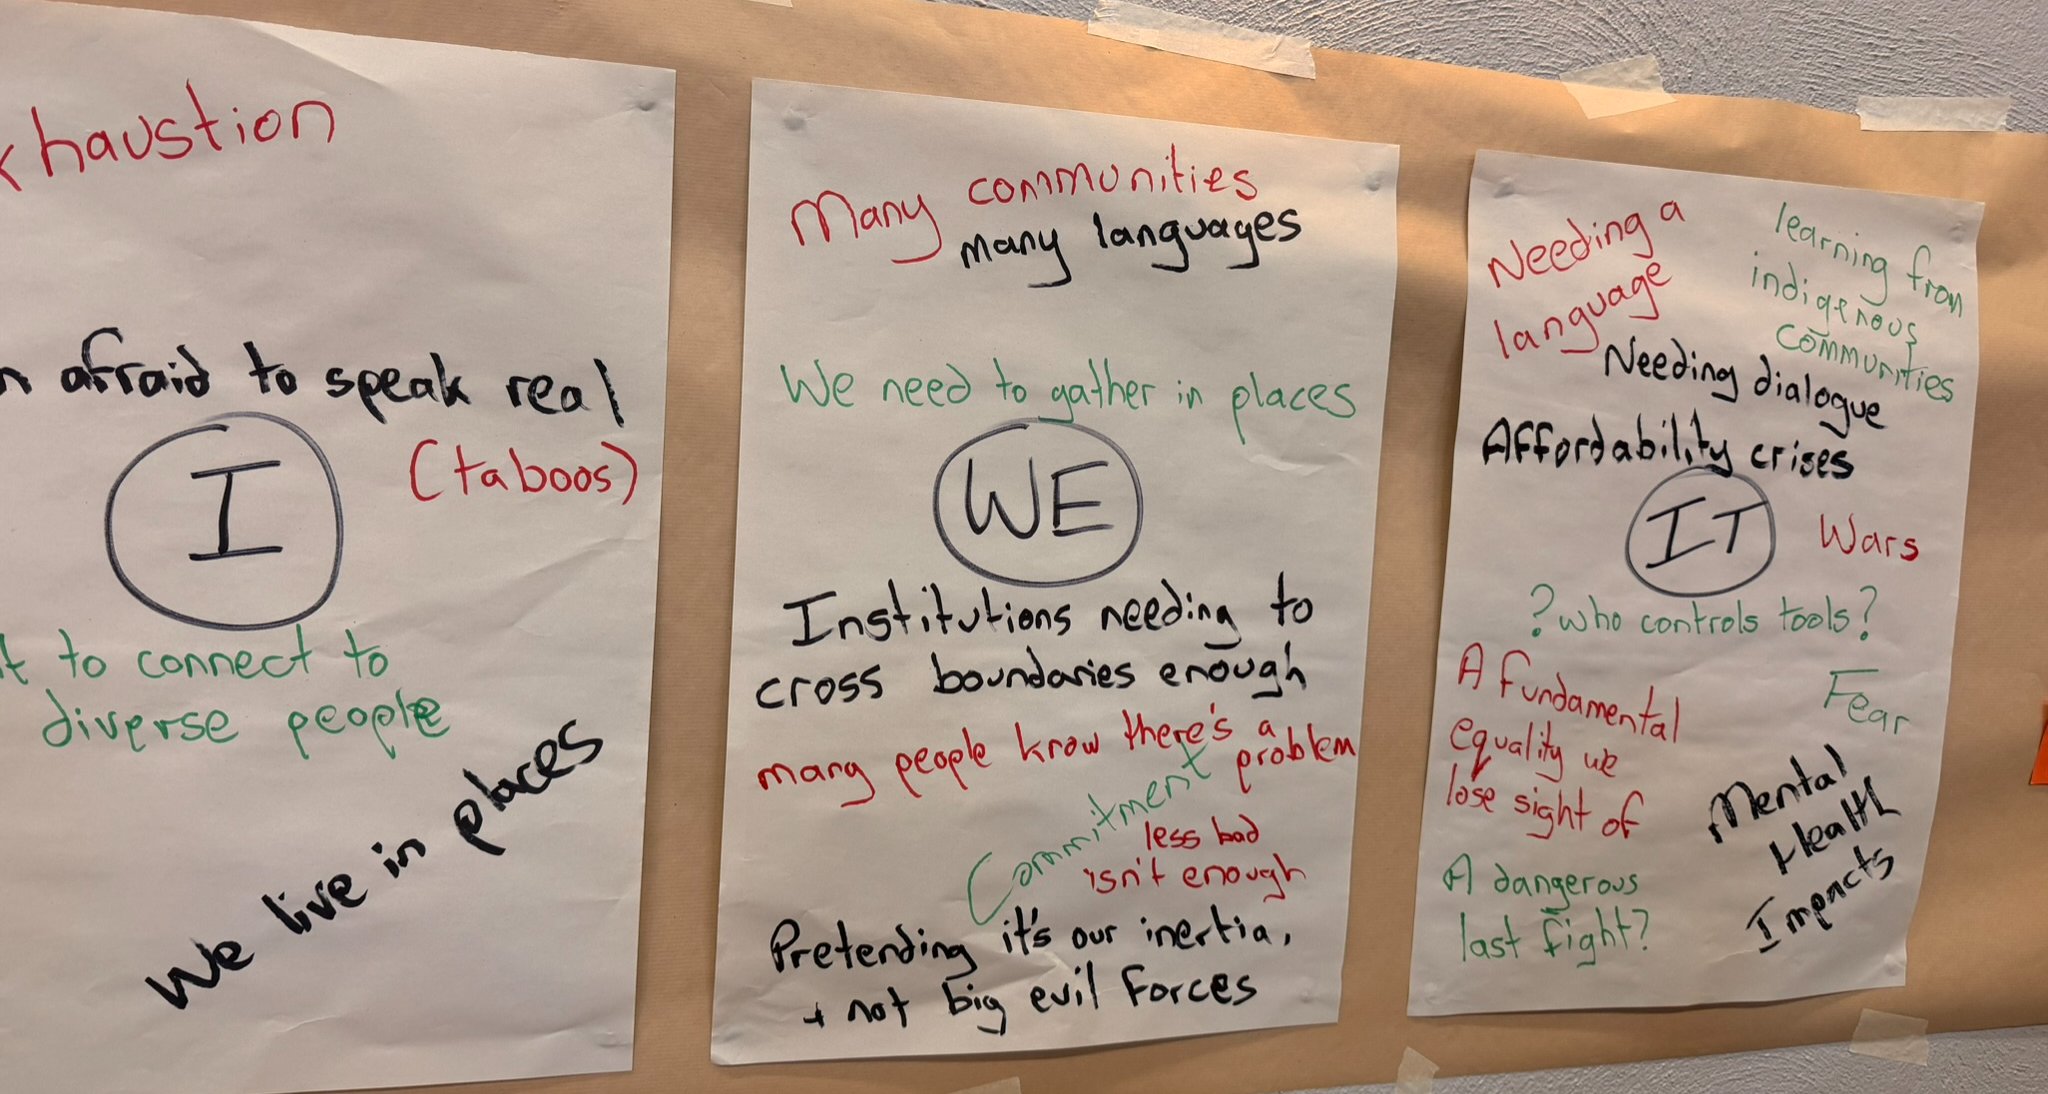 xhaustion
afraid to speak real
(taboos)
I
to connect to
diverse people
We live in places
Many communities
many languages
We need to gather in places
WE
Institutions needing to
cross boundaries enough
many people know there's a
problem
Commitment
less bad
isn't enough
Pretending it's our inertia,
+ not big evil forces
Needing a
language
learning from
indigenous
communities
Needing dialogue
Affordability crises
IT
Wars
? who controls tools?
A fundamental
equality we
lose sight of
Fear
Mental
Health
Impacts
A dangerous
last fight?